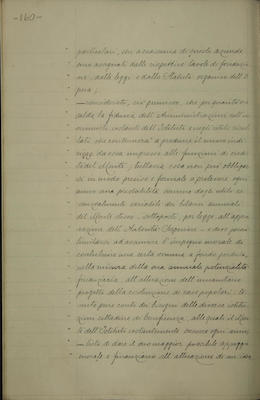 -160-
particolari, che a ciascuna di queste aziende
sono assegnati dalle rispettive tavole di fondazio-
ne, dalle leggi e dallo Statuto organico dell'O
pera;
— considerato, che per quanto
salda la fiducia dell'Amministrazione nell'in
cremento costante dell'Istituto e negli utili
lati che a produrre il nuovo indi
rizzo da essa impresso alle funzioni di
del Monte, tuttavia essa non può obbligar
si in modo preciso e formale a prelevare ogni
anno una prestabilita somma dagli utili es
senzialmente variabili dei bilanci annuali
del Monte stesso, sottoposti, per legge, all'appro
vazione dell'Autorità Superiore - e deve perciò
limitarsi ad assumere l'impegno morale di
contribuire una certa somma a fondo perduto,
nella misura della sua annuale potenzialità
finanziaria all'attuazione dell'umanitario
progetto della costruzione di case popolari, te
nuto pure conto dei bisogni delle diverse istitu
zioni cittadine di beneficenza, alle quali il Mon
te dell'Istituto costantemente ogni anno;
— lieto di dare il suo maggior possibile appoggio
morale e finanziario all'attuazione di un'idea